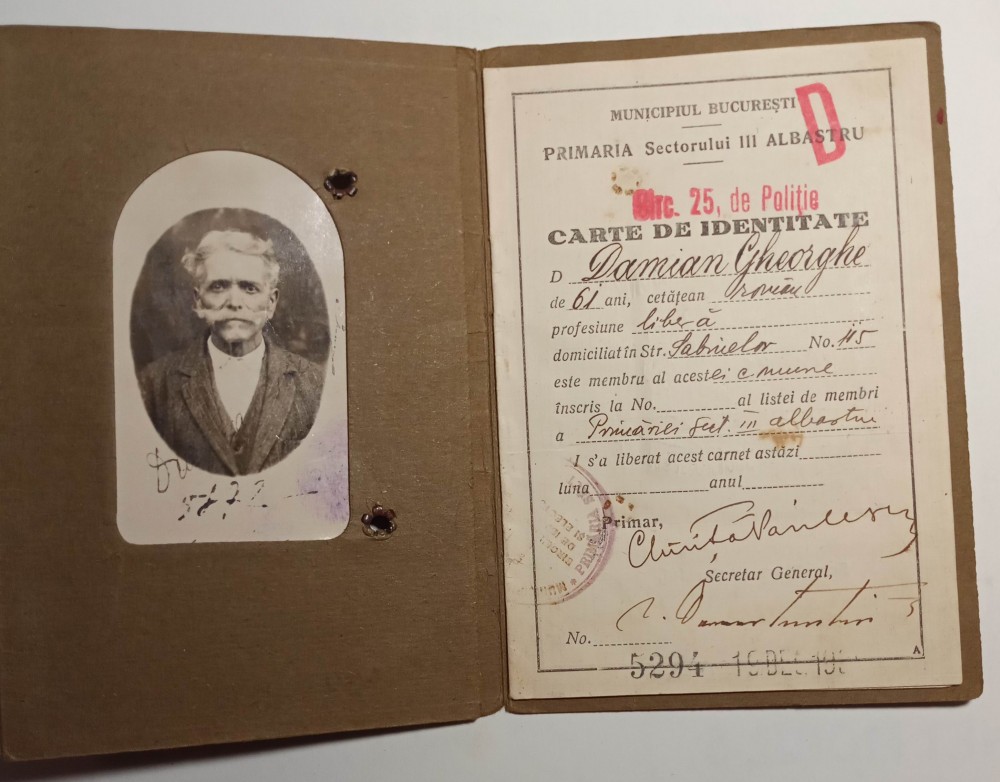 MUNICIPIUL BUCUREȘTI
D
PRIMARIA Sectorului III ALBASTRU
Circ. 25, de Poliție
CARTE DE IDENTITATE
D Damian Gheorghe
de 61 ani, cetățean român
profesiune liberă
domiciliat în Str. No. 115
este membru al acestei comune
înscris la No. al listei de membri
a Primăriei sect. III albastru
I s'a liberat acest carnet astăzi
luna anul
Primar,
PRIMĂRIA
Secretar General,
No.
5294 19 DEC. 19
A